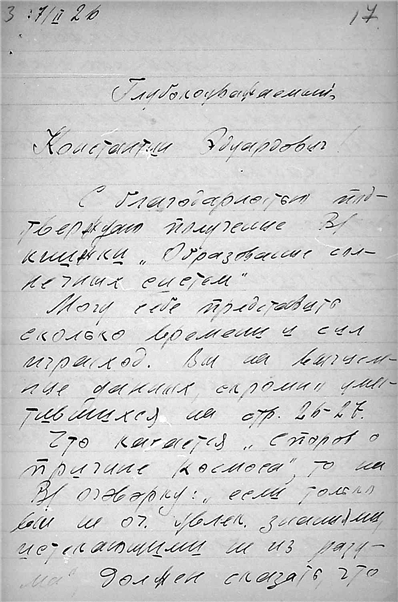 3 17/II 26 17
Глубокоуважаемый
Константин Эдуардович!
С благодарностью под-
тверждаю получение В/
книжки „Образование сол-
нечных систем"
Могу себе представить
сколько времени и сил
израсход. Вы на вычисле-
ние данных, скромно умес-
тившихся на стр. 26-27.
Что касается „Споров о
причине космоса", то на
В/ оговорку: „если только
вы не от. увлек. знаниями,
истекающими не из разу-
ма" должен сказать, что